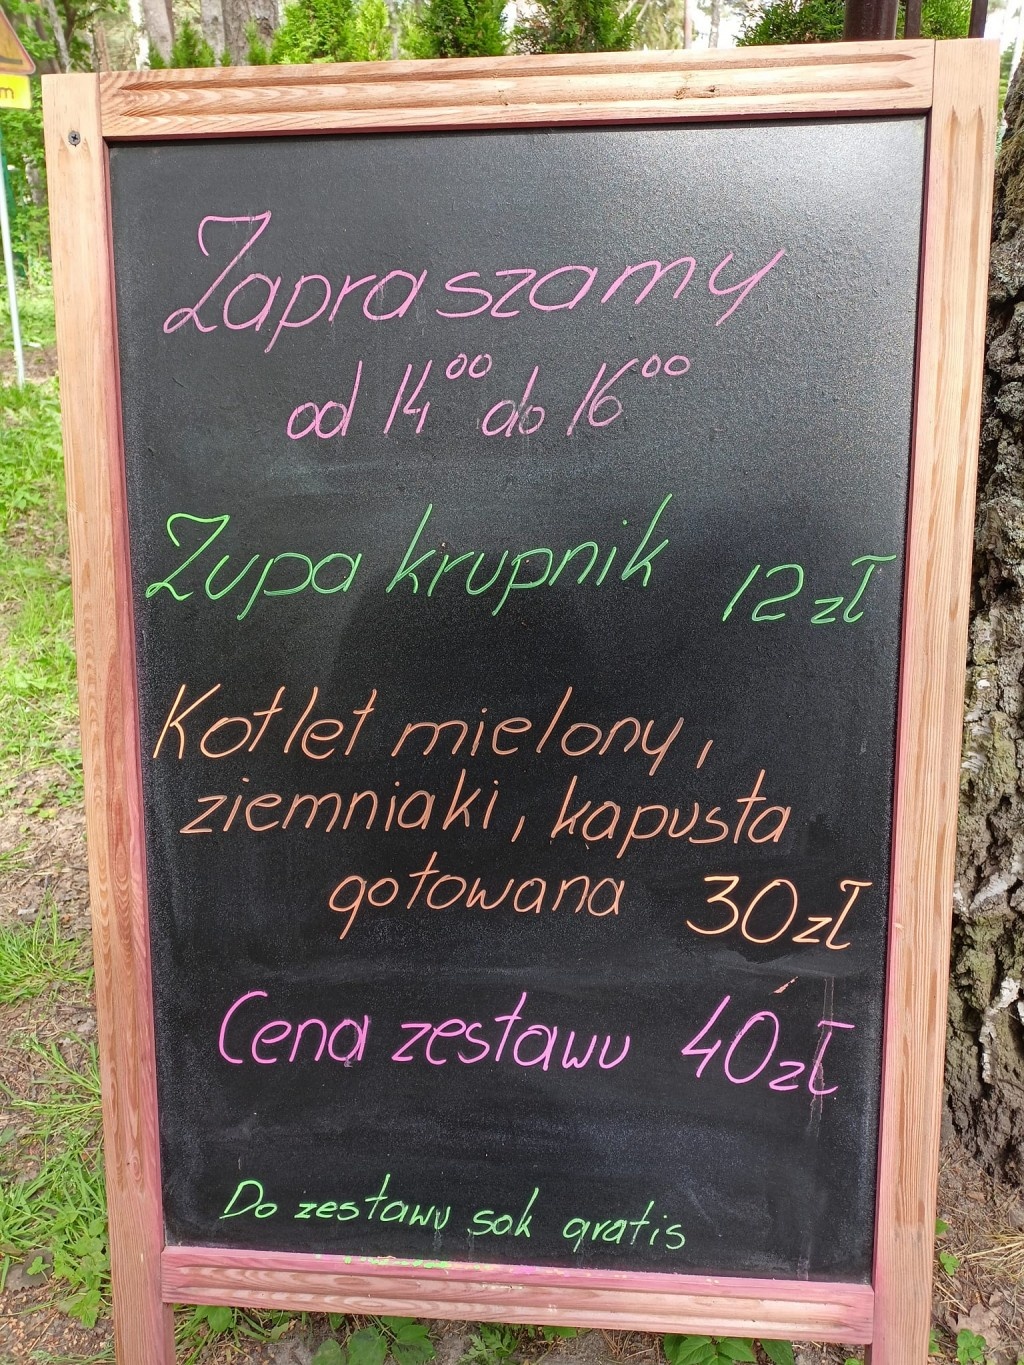 m
Zapraszamy
od 14⁰⁰ do 16⁰⁰
Zupa krupnik 12 zł
Kotlet mielony,
ziemniaki, kapusta
gotowana 30 zł
Cena zestawu 40 zł
Do zestawu sok gratis